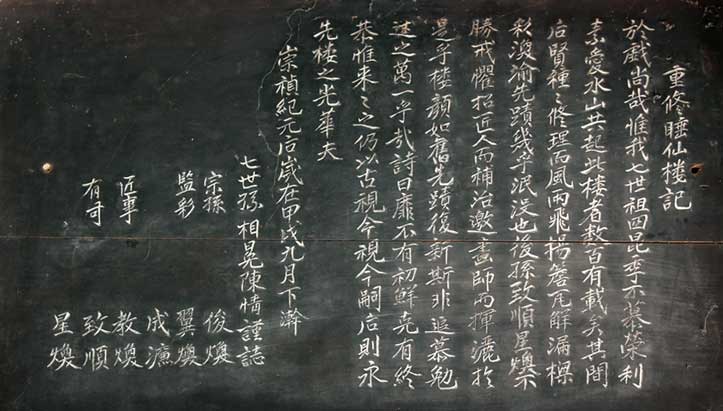 重修睡仙楼記
於戱尚哉惟我七世祖四昆季不慕榮利
素愛水山共起此楼者数百有載矣其間
后賢種〻修理而風雨飛揚簷瓦解漏樑
彩渙渝先蹟幾乎泯没也後孫致順星煥不
勝戒懼招匠人而補治邀畫師而揮灑於
是乎楼顔如舊先蹟復新斯非追慕勉
述之萬一乎哉詩曰靡不有初鮮克有終
恭惟来〻之仍以古視今視今嗣后則永
先楼之光華夫
崇禎紀元后歳在甲戌九月下澣
七世孫相晃陳情謹誌
宗孫 俊煥
監彩 翼煥
成濂
匠事 教煥
有司 致順
星煥